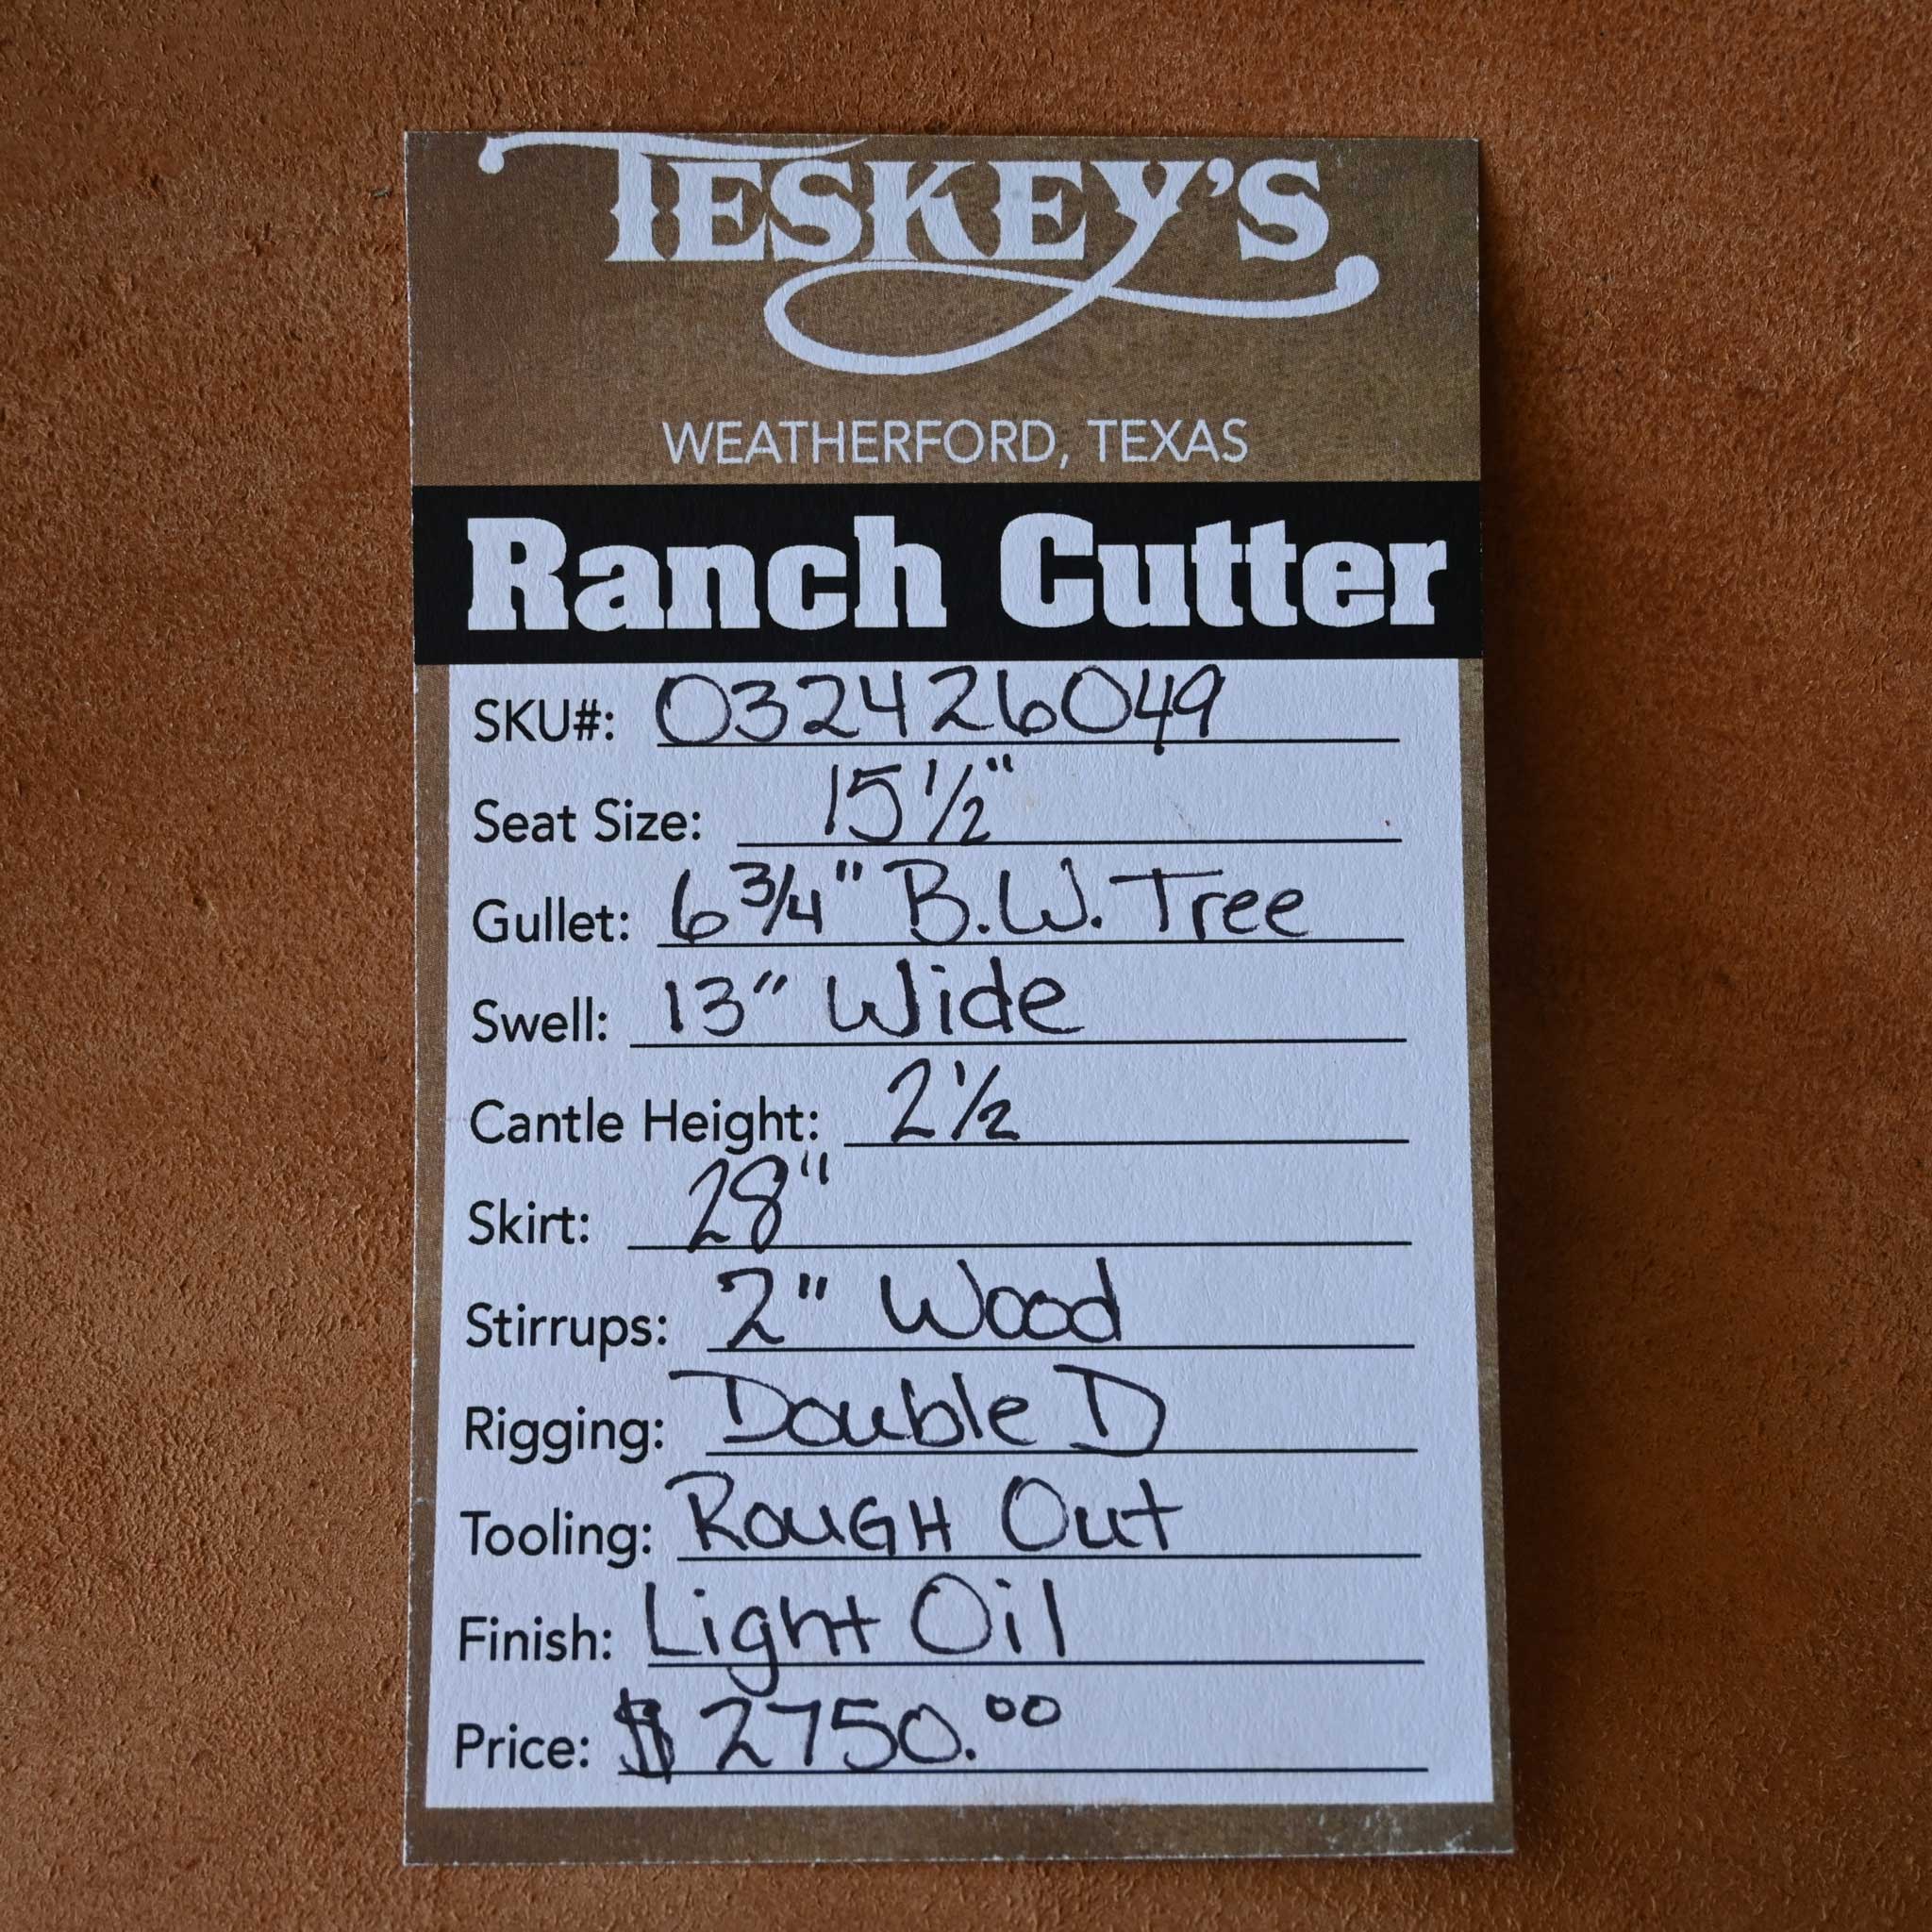 TESKEY'S
WEATHERFORD, TEXAS
Ranch Cutter
SKU#: 032426049
Seat Size: 15 1/2"
Gullet: 6 3/4" B.W. Tree
Swell: 13" Wide
Cantle Height: 2 1/2
Skirt: 28"
Stirrups: 2" Wood
Rigging: Double D
Tooling: RouGH Out
Finish: Light Oil
Price: $ 2750.00